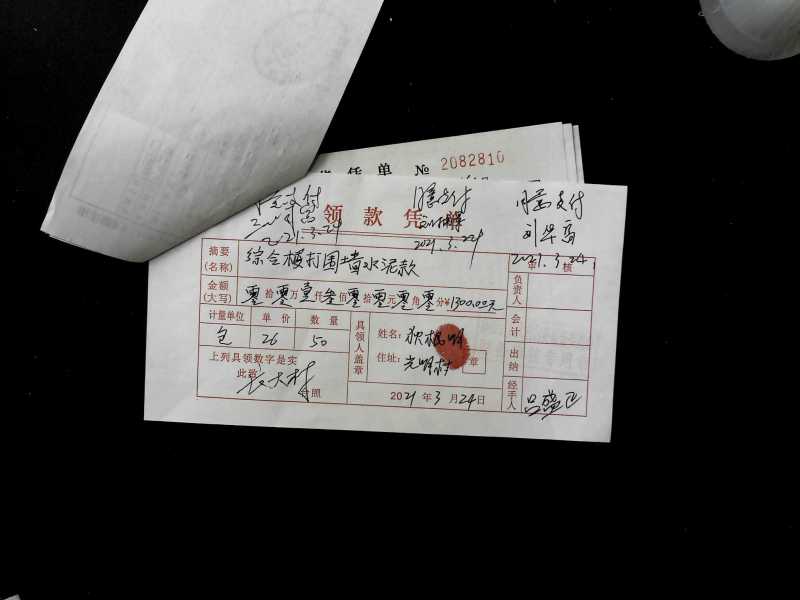 凭 单 № 2082810
同意支付 同意支付
刘华高
2021.3.24 2021.3.24 2021.3.24
领 款 凭 单
审 核
摘要
(名称) 综合楼打围墙水泥款
负责人
金额
(大写) 零拾零万壹仟叁佰零拾零元零角零分¥1300.00元
会计
计量单位 单 价 数 量
包 26 50
具领人盖章
姓名: 狄根明
住址: 光明村 章
出纳
上列具领数字是实
此致
长大村 台照
2021 年 3 月 24 日
经手人 吕盛正